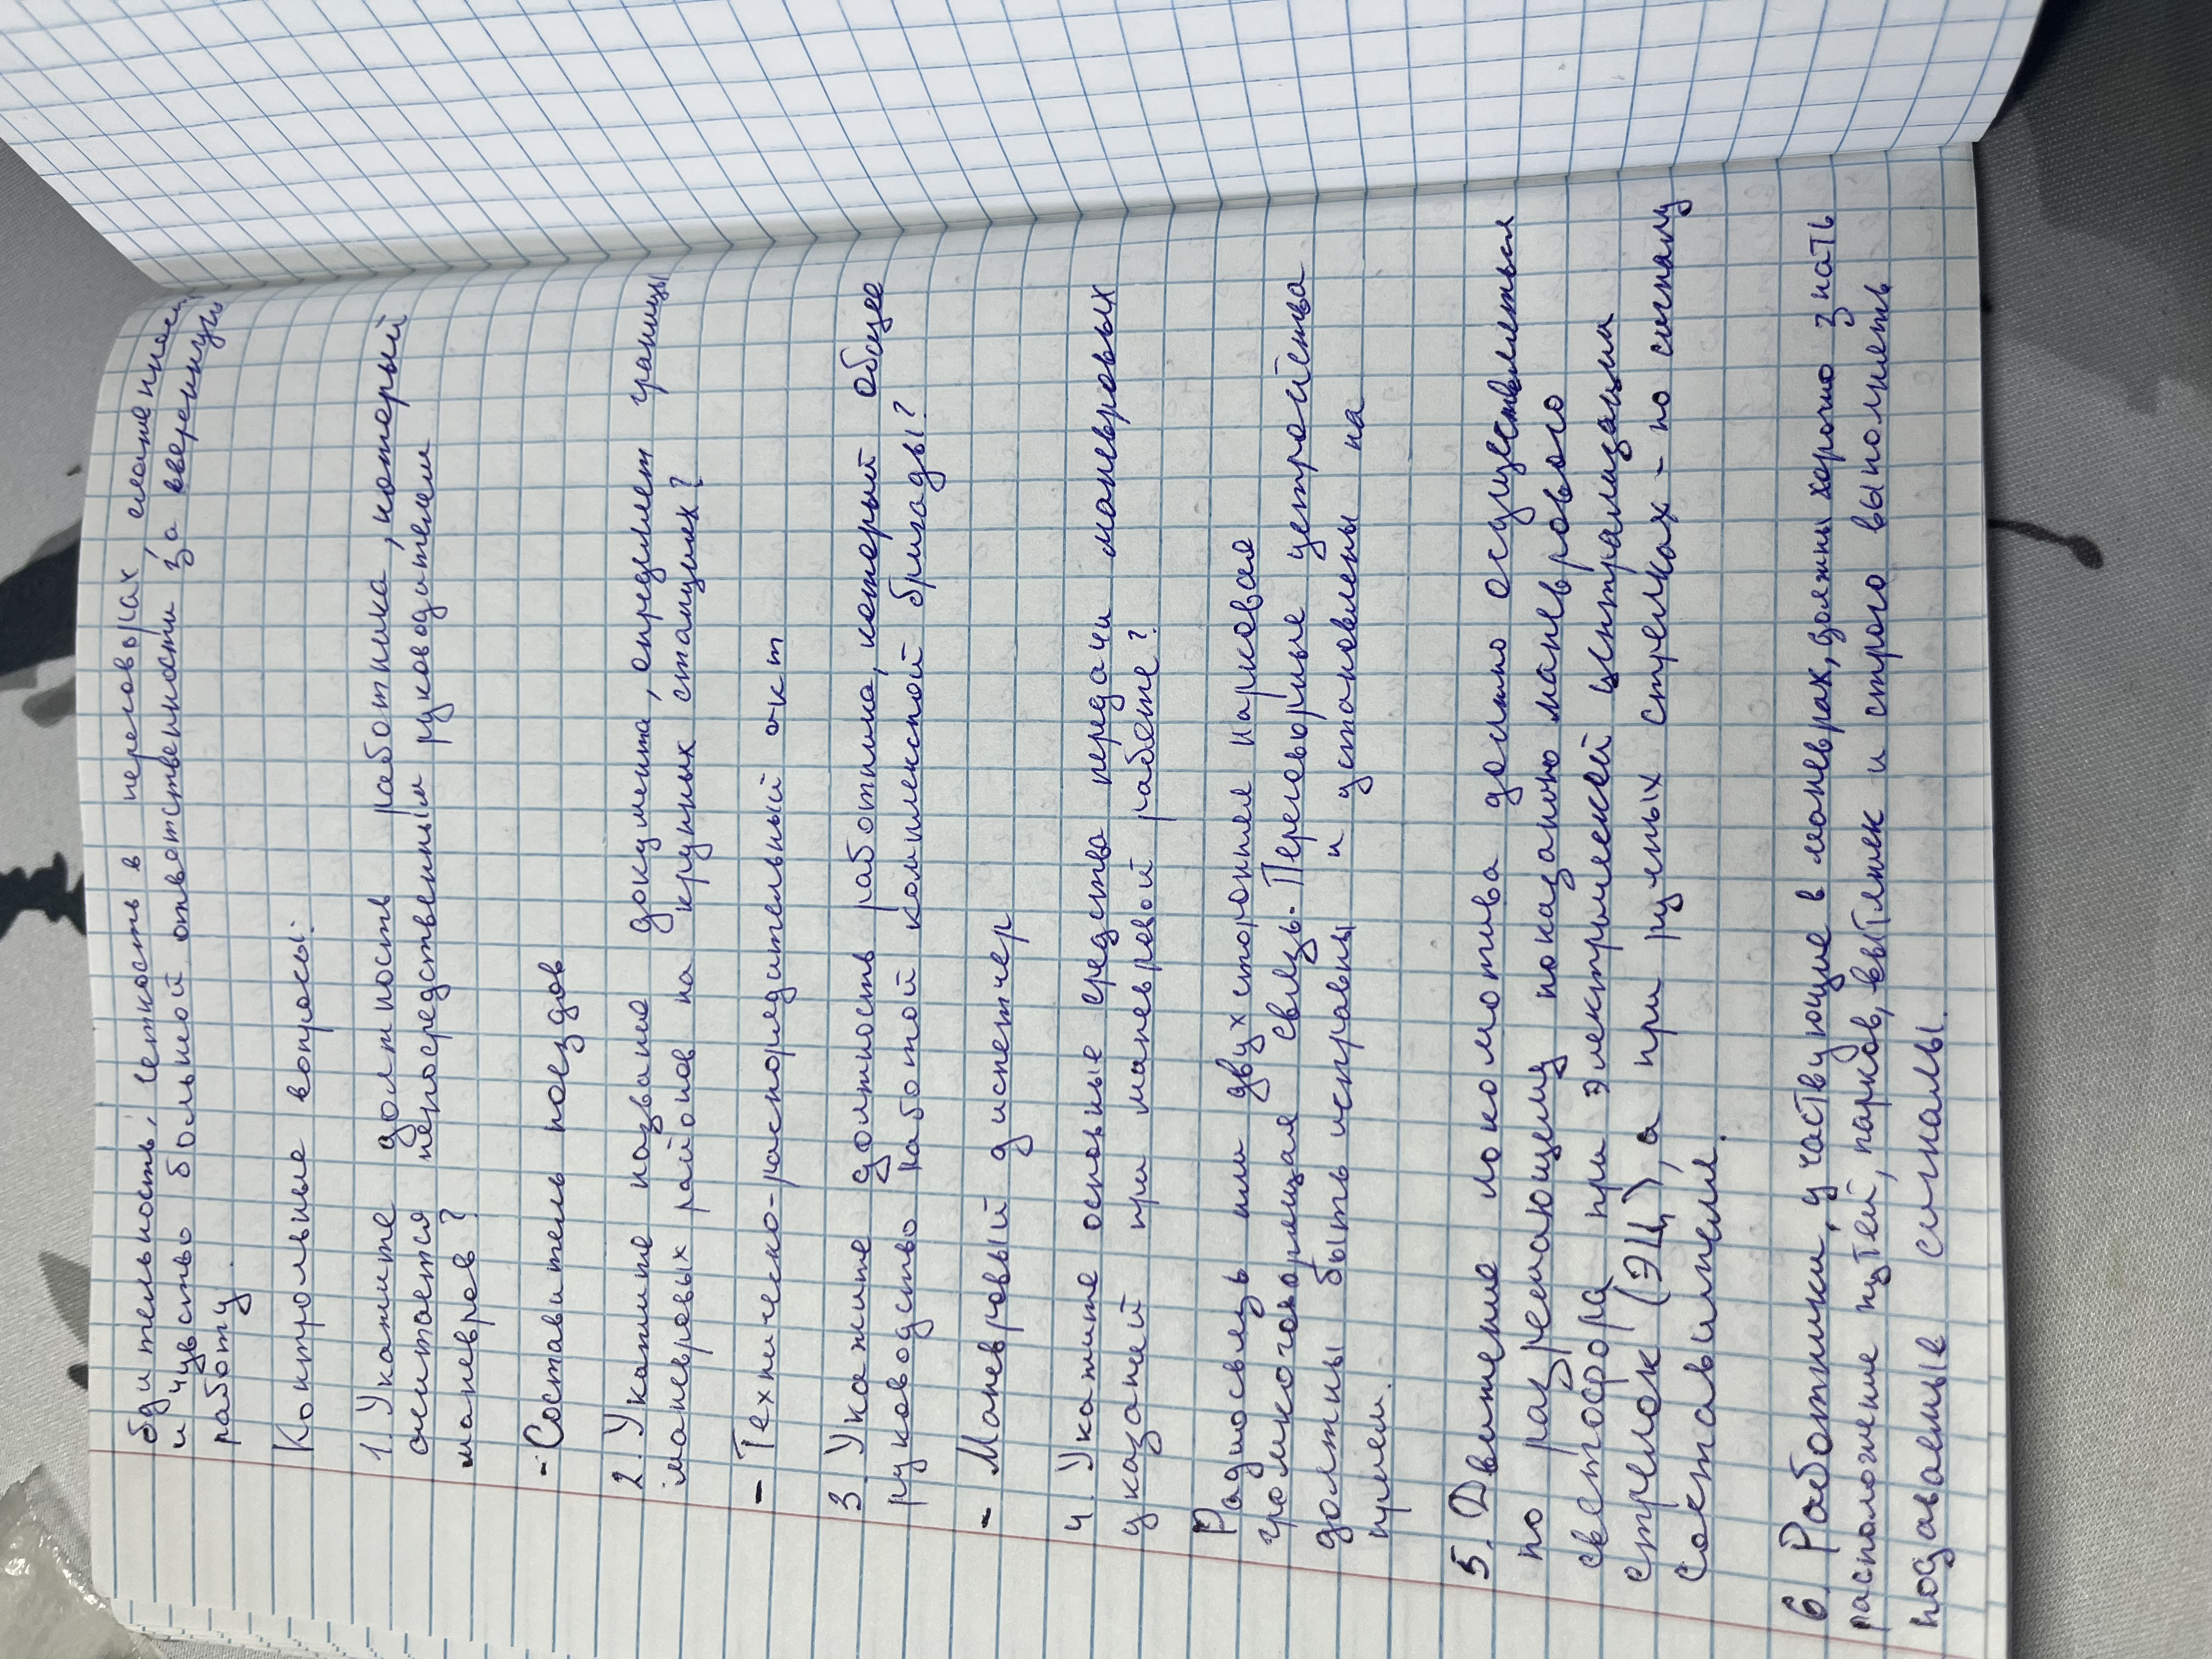 бдительность, четкость в переговорах, слаженность
и чувство большой ответственности за вверенную
работу.
Контрольные вопросы:
1. Укажите должность работника, который
считается непосредственным руководителем
маневров?
- Составитель поездов
2. Укажите название документа, определяет границы
маневровых районов на крупных станциях?
- Техническо-распорядительный акт
3. Укажите должность работника, который общее
руководство работой комплексной бригады?
- Маневровый диспетчер
4. Укажите основные средства передачи маневровых
указаний при маневровой работе?
Радиосвязь или двухсторонняя парковая
громкоговорящая связь. Переговорные устройства
должны быть исправны и установлены на
путем.
5. Движение локомотива должно осуществляться
по разрешающему показанию маневрового
светофора при электрической централизации
стрелок (ЭЦ), а при ручных стрелках - по сигналу
составителя.
6. Работники, участвующие в маневрах, должны хорошо знать
расположение путей, парков, вытяжек и строго выполнять
подаваемые сигналы.